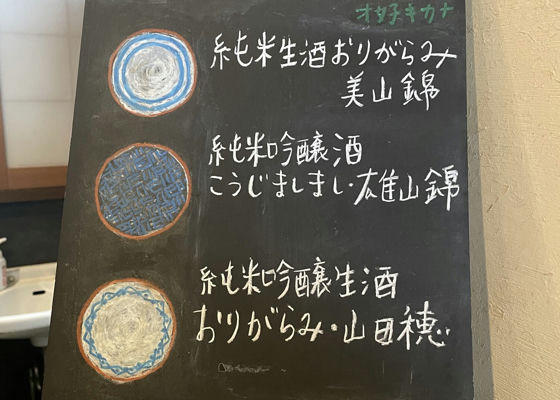 オ好キカナ
純米生酒おりがらみ
美山錦
純米吟醸酒
こうじましまし・雄山錦
純米吟醸生酒
おりがらみ・山田穂